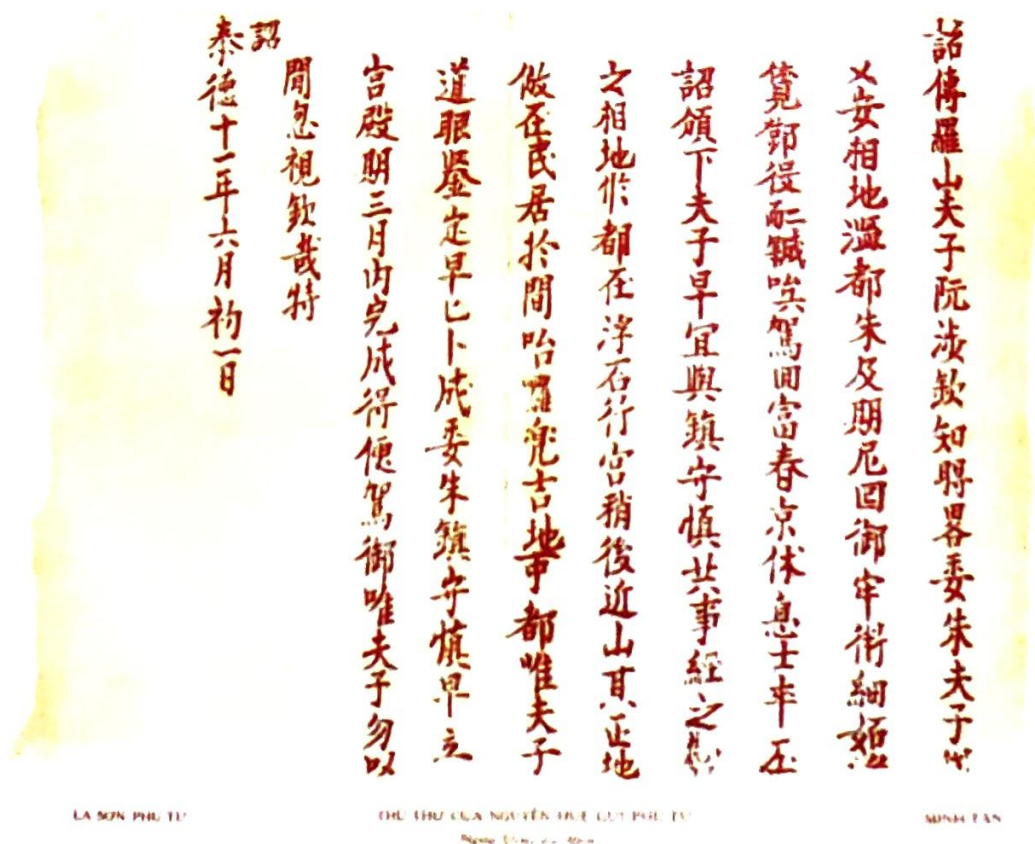 詔傳羅山夫子阮浹欽知𣈜畧委朱夫子
乂安相地濫都朱及期尼回御牢衛細
覓鄧役駕回富春京休息士卒丕
詔頒下夫子早宜與鎮守慎共事經之
之相地作都在浮石行宮稍後近山其正地
倣在民居於間咍羅吉地可都唯夫子
道眼鑒定早早卜成委朱鎮守慎早立
宮殿期三月内完成得便駕御唯夫子勿以
閒忽視欽哉特
詔
泰德十一年六月初一日
LA SƠN PHU TỬ
THỦ THƯ CỦA NGUYỄN HUỆ GỬI PHU TỬ
MINH TÂN